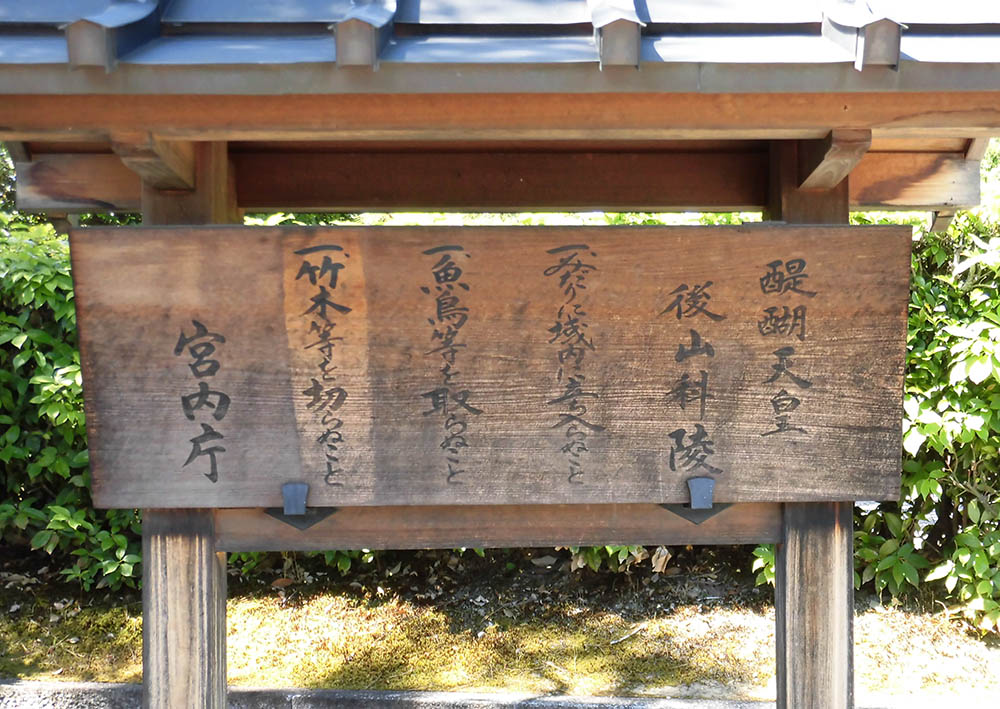 醍醐天皇
後山科陵
一、みだりに域内に立入らぬこと
一、魚鳥等を取らぬこと
一、竹木等を切らぬこと
宮内庁